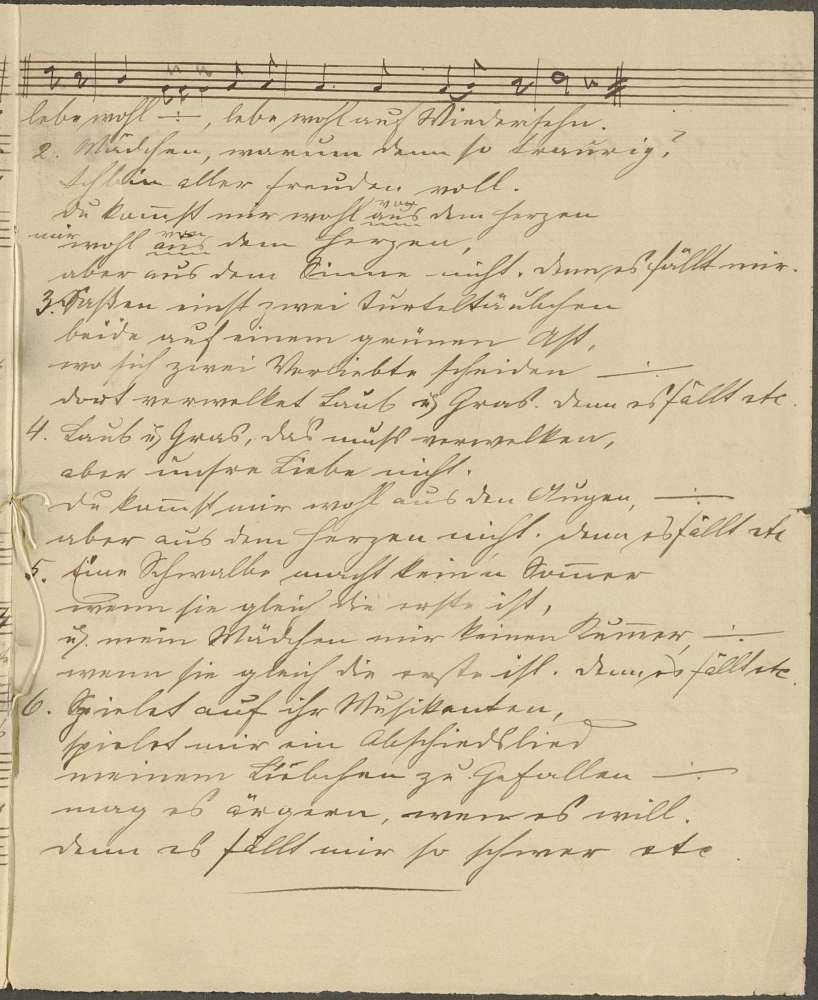 lebe wohl -:-, lebe wohl auf Wiedersehn.
2. Mädchen, warum denn so traurig?
Ich bin aller Freuden voll.
von
Du kom̅st mir wohl aus dem Herzen
mir von
wohl aus dem Herzen,
aber aus dem Sinne nicht. Denn es fällt mir.
3. Saßen einst zwei Turteltäubchen
beide auf einem grünen Ast,
wo sich zwei Verliebte scheiden -:-
dort verwelket Laub u. Gras. Denn es fällt etc.
4. Laub u. Gras, das muß verwelken,
aber unsre Liebe nicht.
Du kom̅st mir wohl aus den Augen, -:-
aber aus dem Herzen nicht. Denn es fällt etc
5. Eine Schwalbe macht kein'n Som̅er
wenn sie gleich die erste ist,
u. mein Mädchen mir keinen Kum̅er, -:-
wenn sie gleich die erste ist. Denn es fällt etc.
6. Spielet auf ihr Musikanten,
spielet mir ein Abschiedslied
meinem Liebchen zu Gefallen -:-
mag es ärgern, wen es will.
Denn es fällt mir so schwer etc.